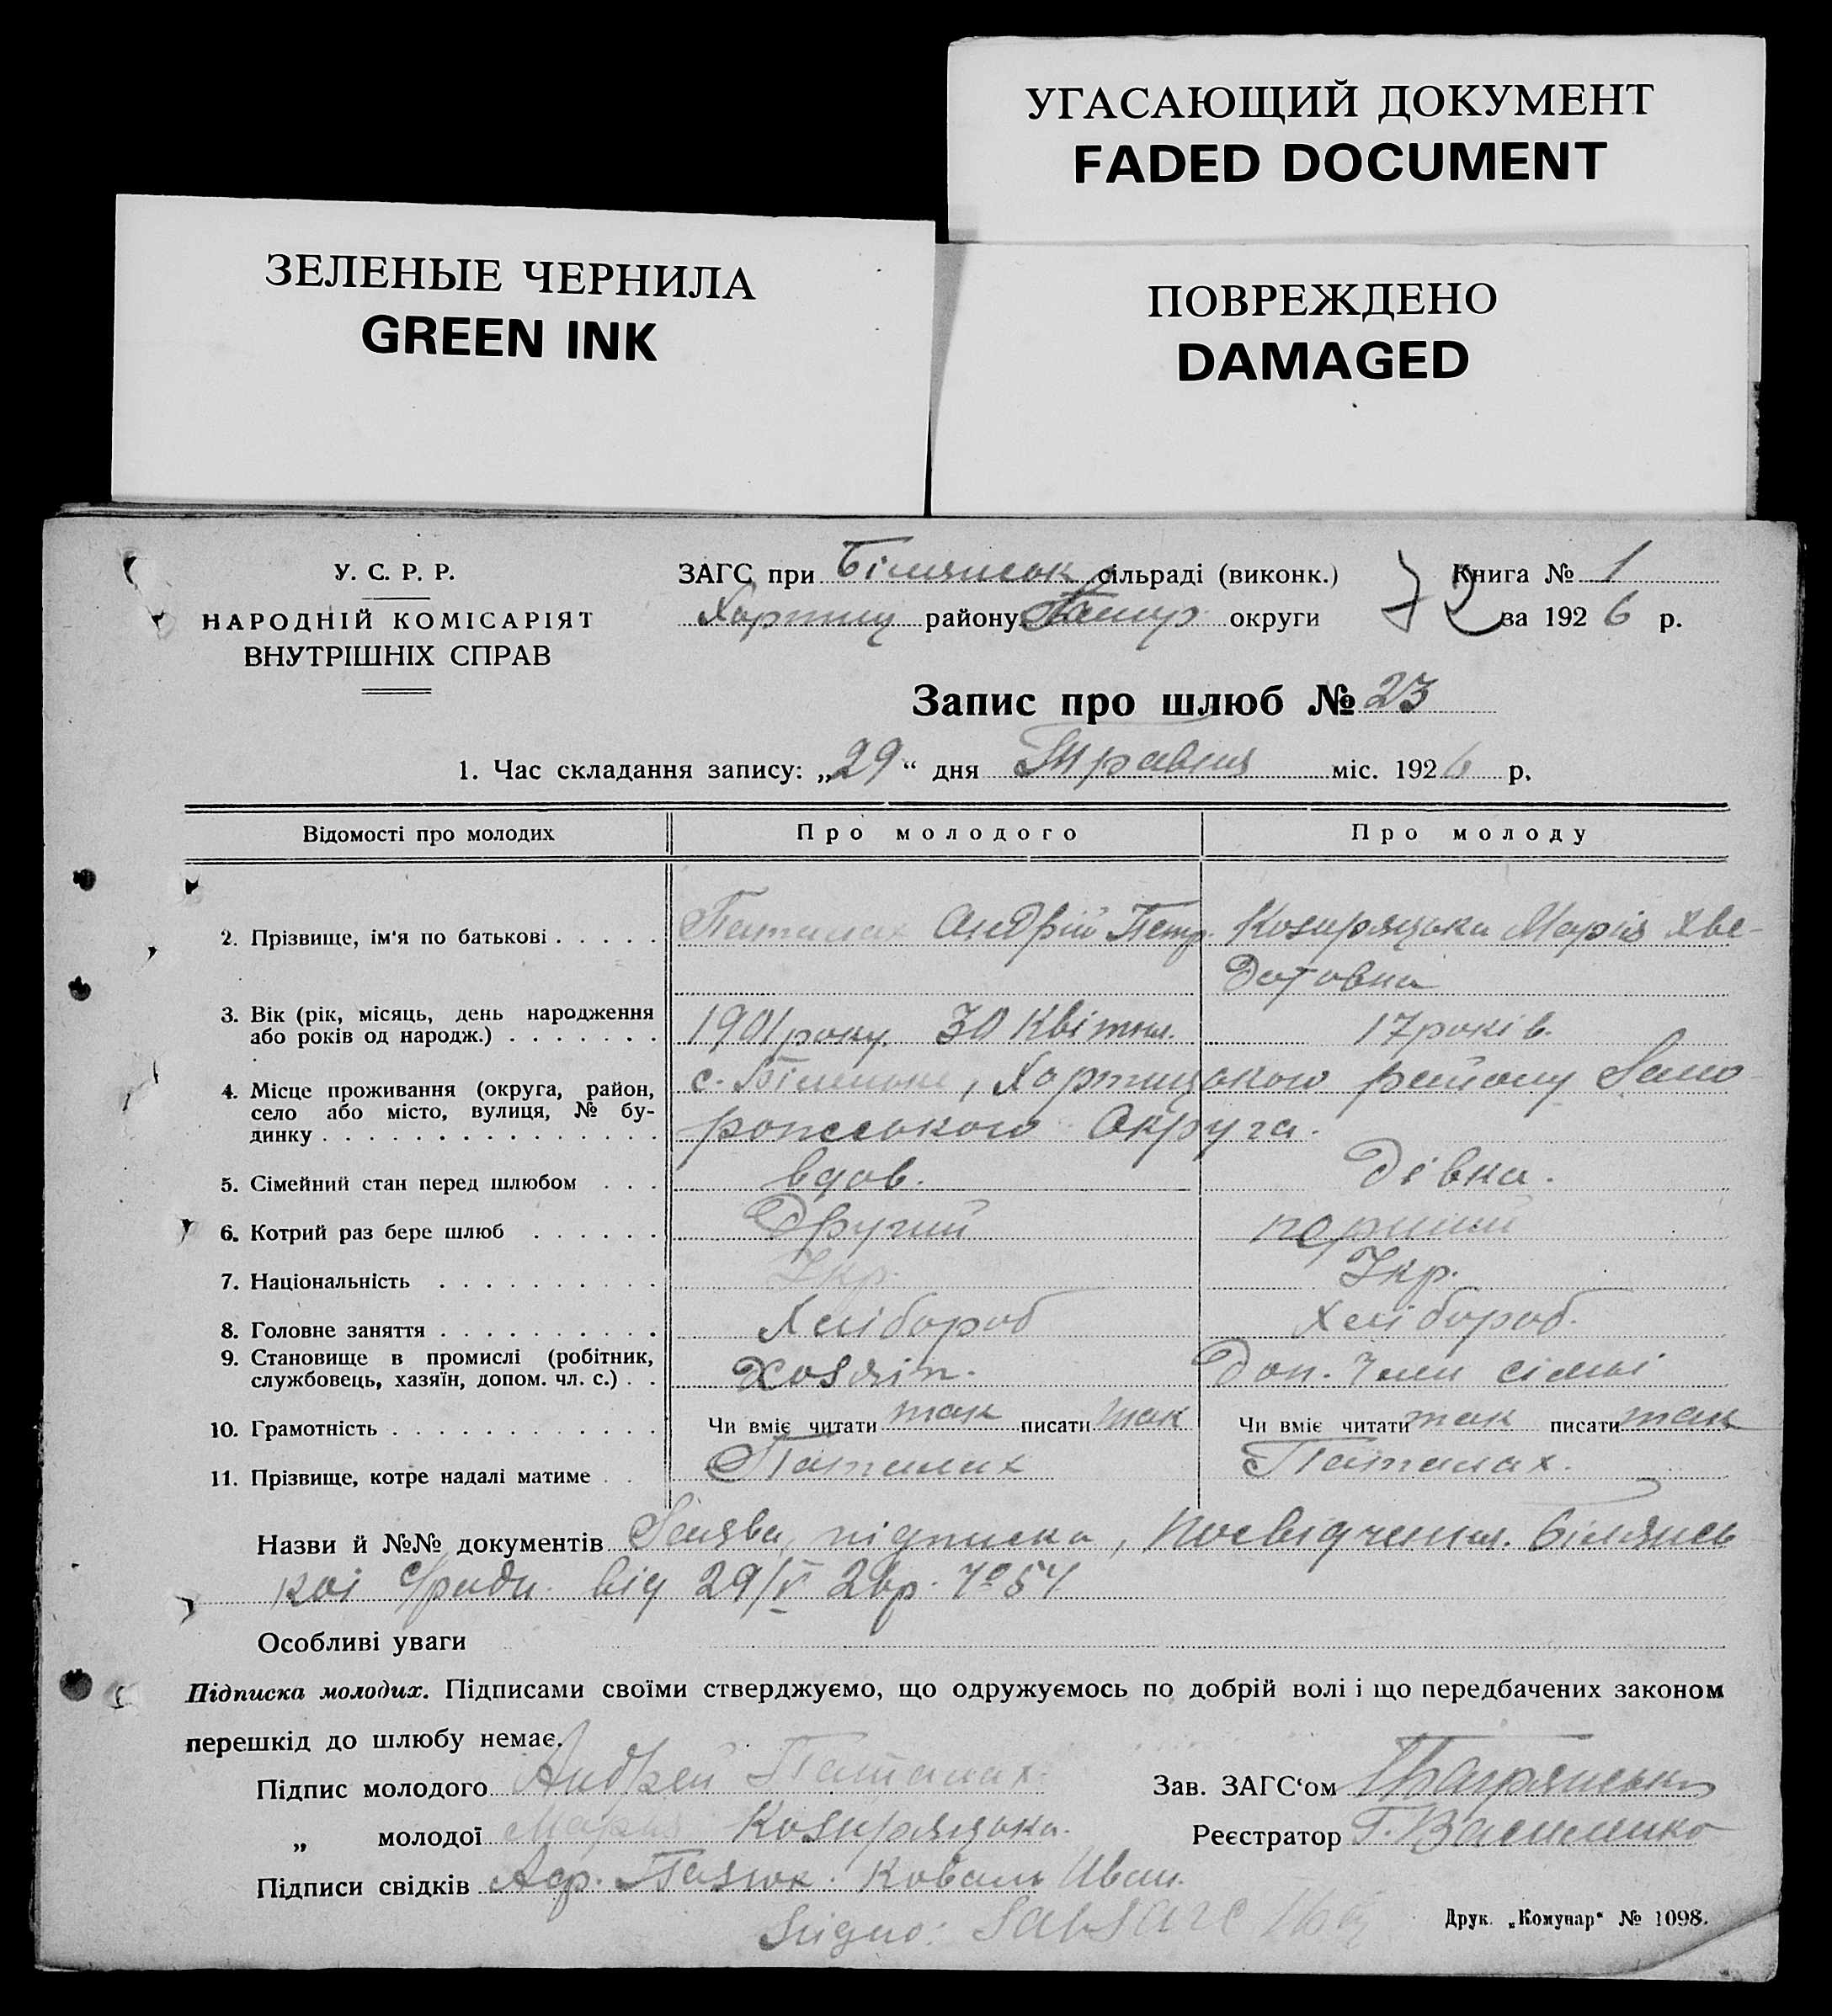 УГАСАЮЩИЙ ДОКУМЕНТ
FADED DOCUMENT
ЗЕЛЕНЫЕ ЧЕРНИЛА
GREEN INK
ПОВРЕЖДЕНО
DAMAGED
У. С. Р. Р.
НАРОДНІЙ КОМІСАРІЯТ
ВНУТРІШНІХ СПРАВ
ЗАГС при Біленськ сільраді (виконк.) Книга № 1
Хортиц району округи 72 за 1926 р.
Запис про шлюб № 23
1. Час складання запису: „29“ дня Травня міс. 1926 р.
Відомості про молодих Про молодого Про молоду
2. Прізвище, ім'я по батькові Паталах Андрій Петр. Козиряцька Марія Хве-
дотовна
3. Вік (рік, місяць, день народження
або років од народж.) 1901 року 30 Квітня. 17 років.
4. Місце проживання (округа, район, с. Біленьке, Хортицького району Запо
село або місто, вулиця, № бу-
динку рожського Округа.
5. Сімейний стан перед шлюбом вдов. Дівка.
6. Котрий раз бере шлюб Другий перший
7. Національність Укр. Укр.
8. Головне заняття Хлібороб Хлібороб.
9. Становище в промислі (робітник,
службовець, хазяїн, допом. чл. с.) Хозяїн. Доп. член сімьі
10. Грамотність Чи вміє читати так писати так Чи вміє читати так писати так
11. Прізвище, котре надалі матиме Паталах Паталах.
Назви й №№ документів Заява, підписка, посвідчення. Білянсь
коі с/ради від 29/V 26р. № 54
Особливі уваги
Підписка молодих. Підписами своїми стверджуємо, що одружуємось по добрій волі і що передбачених законом
перешкід до шлюбу немає.
Підпис молодого Андрей Паталах. Зав. ЗАГС'ом
„ молодої Мария Козиряцька. Реєстратор Г. Василенко
Підписи свідків Коваль Иван.
Згідно:
Друк. „Комунар“ № 1098.